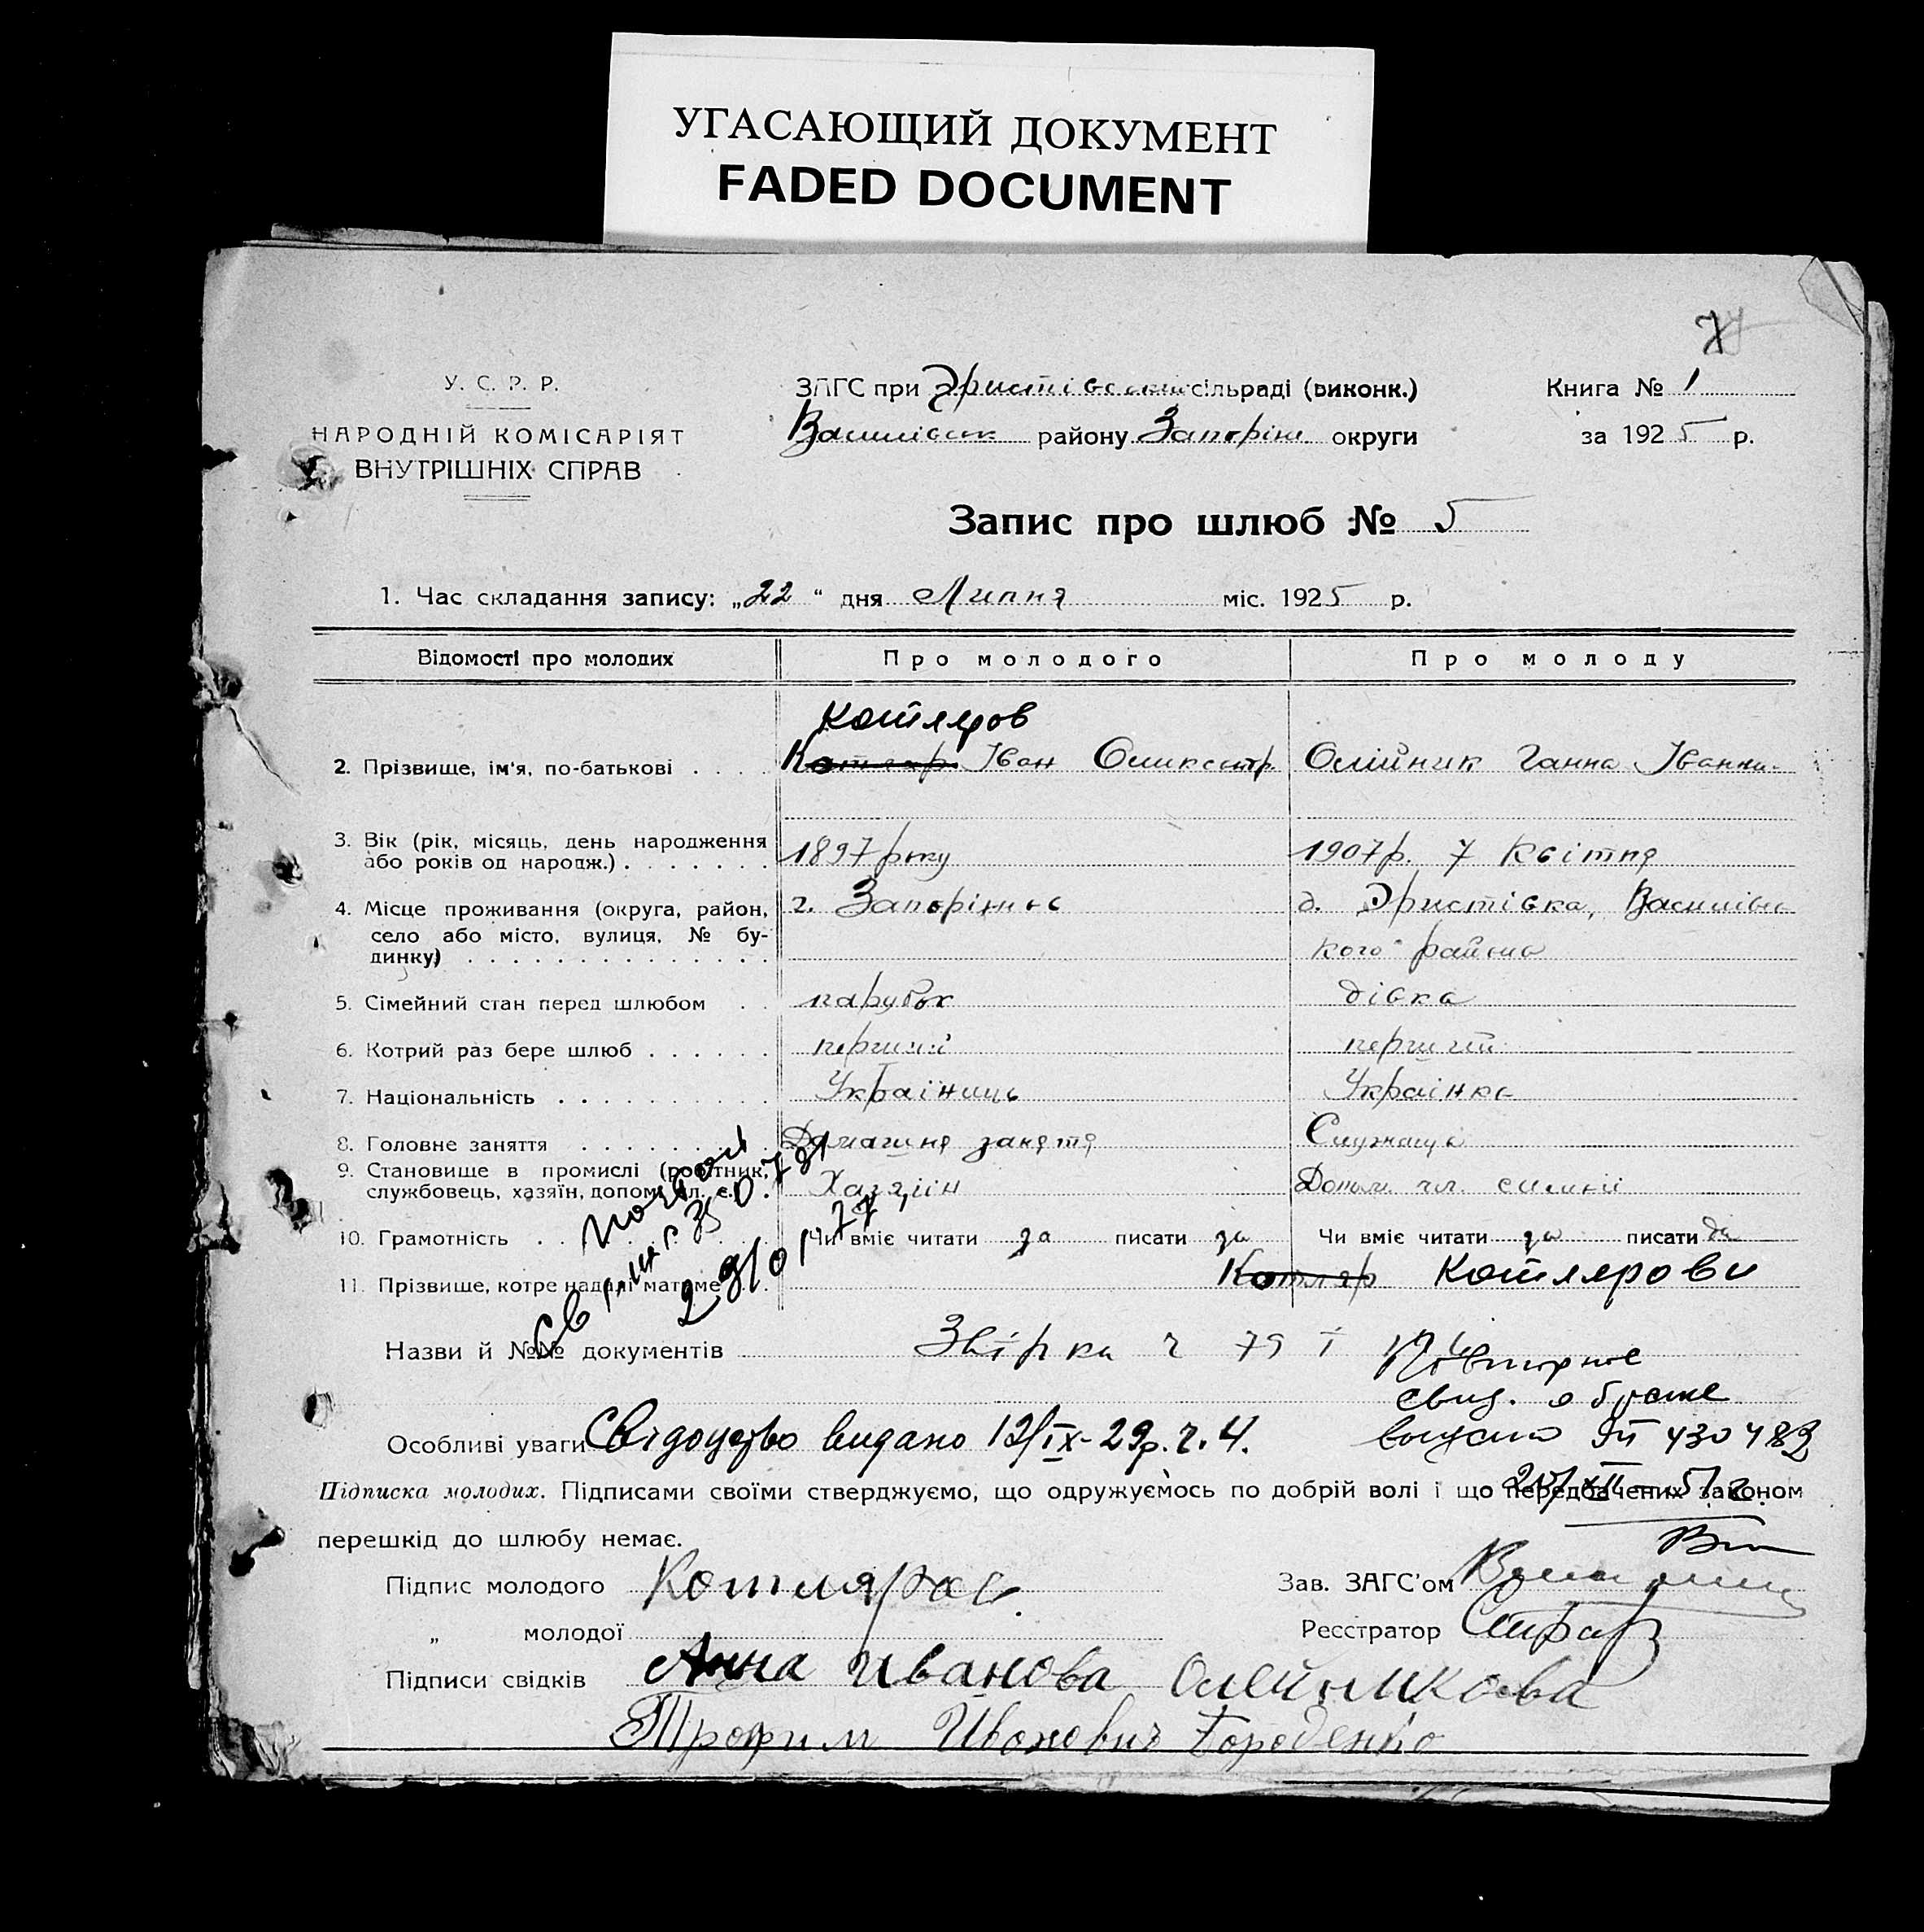 УГАСАЮЩИЙ ДОКУМЕНТ
FADED DOCUMENT
7
У. С. Р. Р.
НАРОДНІЙ КОМІСАРІЯТ
ВНУТРІШНІХ СПРАВ
ЗАГС при сільраді (виконк.)
Василівськ району Запоріж округи
Книга № 1
за 1925 р.
Запис про шлюб № 5
1. Час складання запису: „22“ дня Липня міс. 1925 р.
Відомості про молодих Про молодого Про молоду
Котляров
2. Прізвище, ім'я, по-батькові . . . . Котляр Іван Олександр. Олійник Ганна Іванни-
3. Вік (рік, місяць, день народження
або років од народж.) . . . . . . . 1897 року 1907р. 7 Квітня
4. Місце проживання (округа, район, г. Запоріжжє д. Эристівка, Василівс
село або місто, вулиця, № бу- кого району
динку) . . . . . . . . . . . . . . .
5. Сімейний стан перед шлюбом . . парубок дівка
6. Котрий раз бере шлюб . . . . . . перший перший
7. Національність . . . . . . . . . . Українець Українка
8. Головне заняття . . . . . . . . . Домашня заняття Служаща
9. Становище в промислі (робітник,
службовець, хазяїн, допом. чл. с.) . Хазяїн Допом. чл. сем'ї
10. Грамотність . . Чи вміє читати да писати да Чи вміє читати да писати да
11. Прізвище, котре надалі матиме . . Котляр Котлярови
Назви й №№ документів Звірка ч 79 і
Повторне
свид. о браке
Особливі уваги Свідоцтво видано 12/IX-29р. ч. 4. выдано ЯП 430483
Підписка молодих. Підписами своїми стверджуємо, що одружуємось по добрій волі і що передбачених законом
перешкід до шлюбу немає.
Підпис молодого Котляров. Зав. ЗАГС'ом
„ молодої Реєстратор
Підписи свідків Анна Иванова Олейникова
Трофим Иванович Бороденко